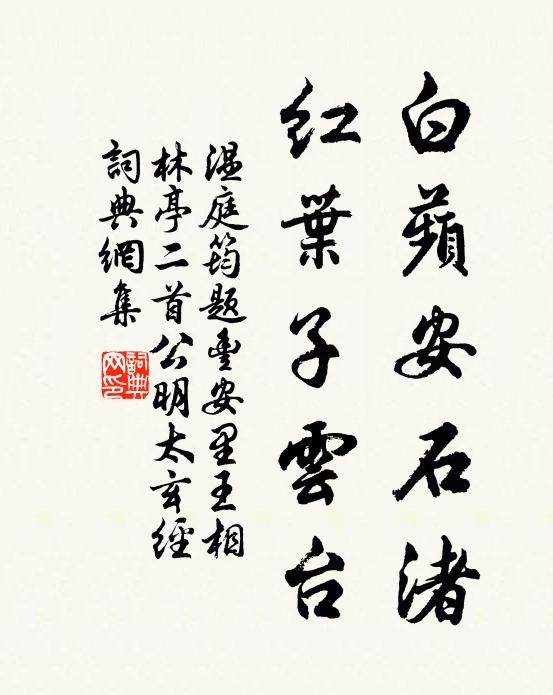 白蘋安石渚
紅葉子雲台
温庭筠題豊安里王相
林亭二首公明太玄經
詞典網集
詞典網印